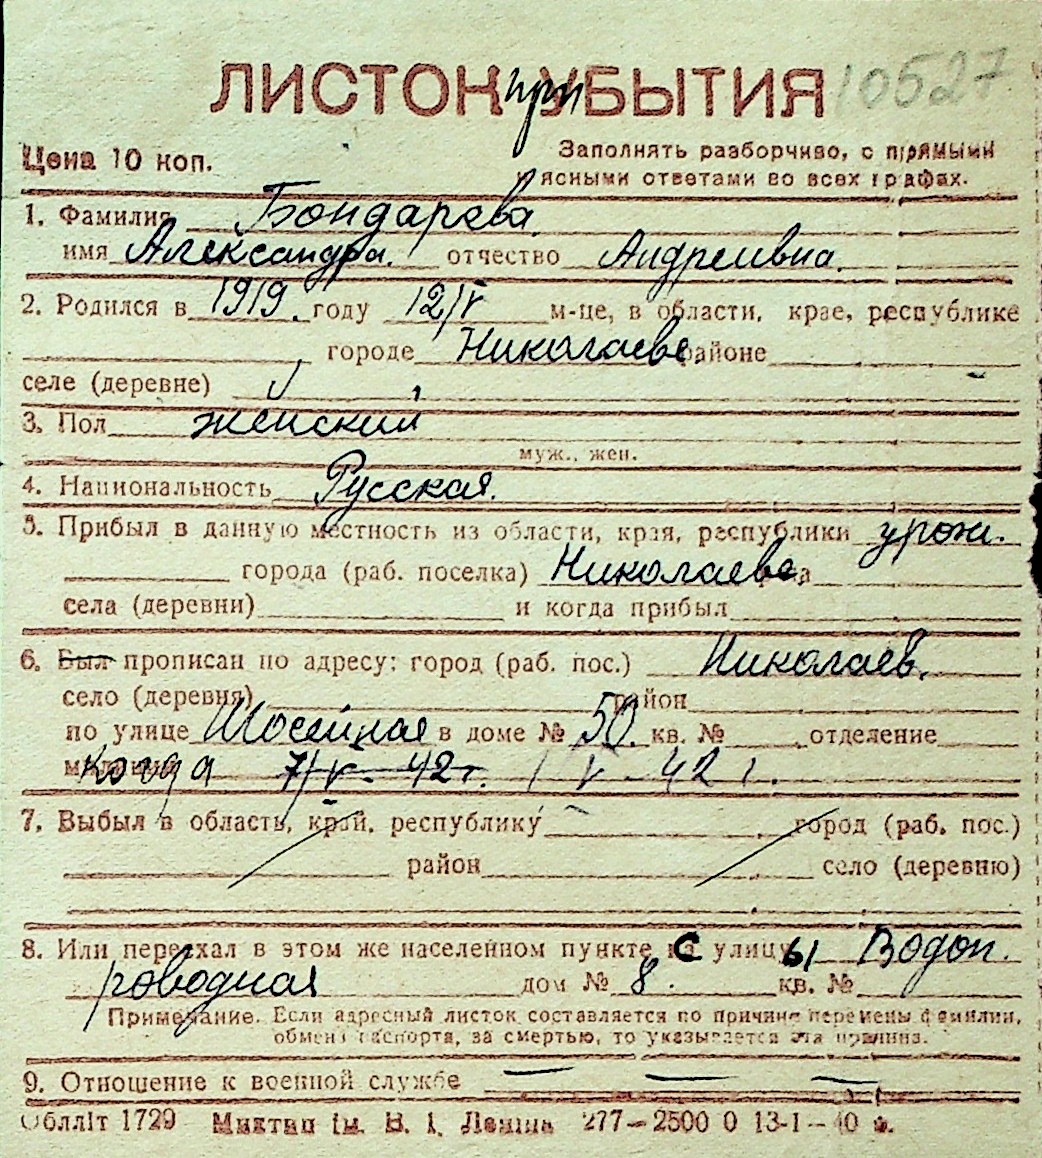 ЛИСТОК при УБЫТИЯ 10527
Цена 10 коп. Заполнять разборчиво, с прямыми
и ясными ответами во всех графах.
1. Фамилия Бондарева
имя Александра. отчество Андреивна.
2. Родился в 1919. году 12/V м-це, в области, крае, республике
городе Николаеве районе
селе (деревне)
3. Пол женский
муж., жен.
4. Национальность Русская.
5. Прибыл в данную местность из области, края, республики урож.
города (раб. поселка) Николаева
села (деревни) и когда прибыл
6. Был прописан по адресу: город (раб. пос.) Николаев.
село (деревня) район
по улице Шосейная в доме № 50. кв. № отделение
когда 7/V-42г. 1 V-42 г.
7. Выбыл в область, край, республику город (раб. пос.)
район село (деревню)
8. Или переехал в этом же населенном пункте с улицы Водоп.
роводная дом № 8. кв. №
Примечание. Если адресный листок составляется по причине перемены фамилии,
обмена паспорта, за смертью, то указывается эта причина.
9. Отношение к военной службе — — —
Облліт 1729 ім. В. І. Леніна 277—2500 0 13-1—40 р.